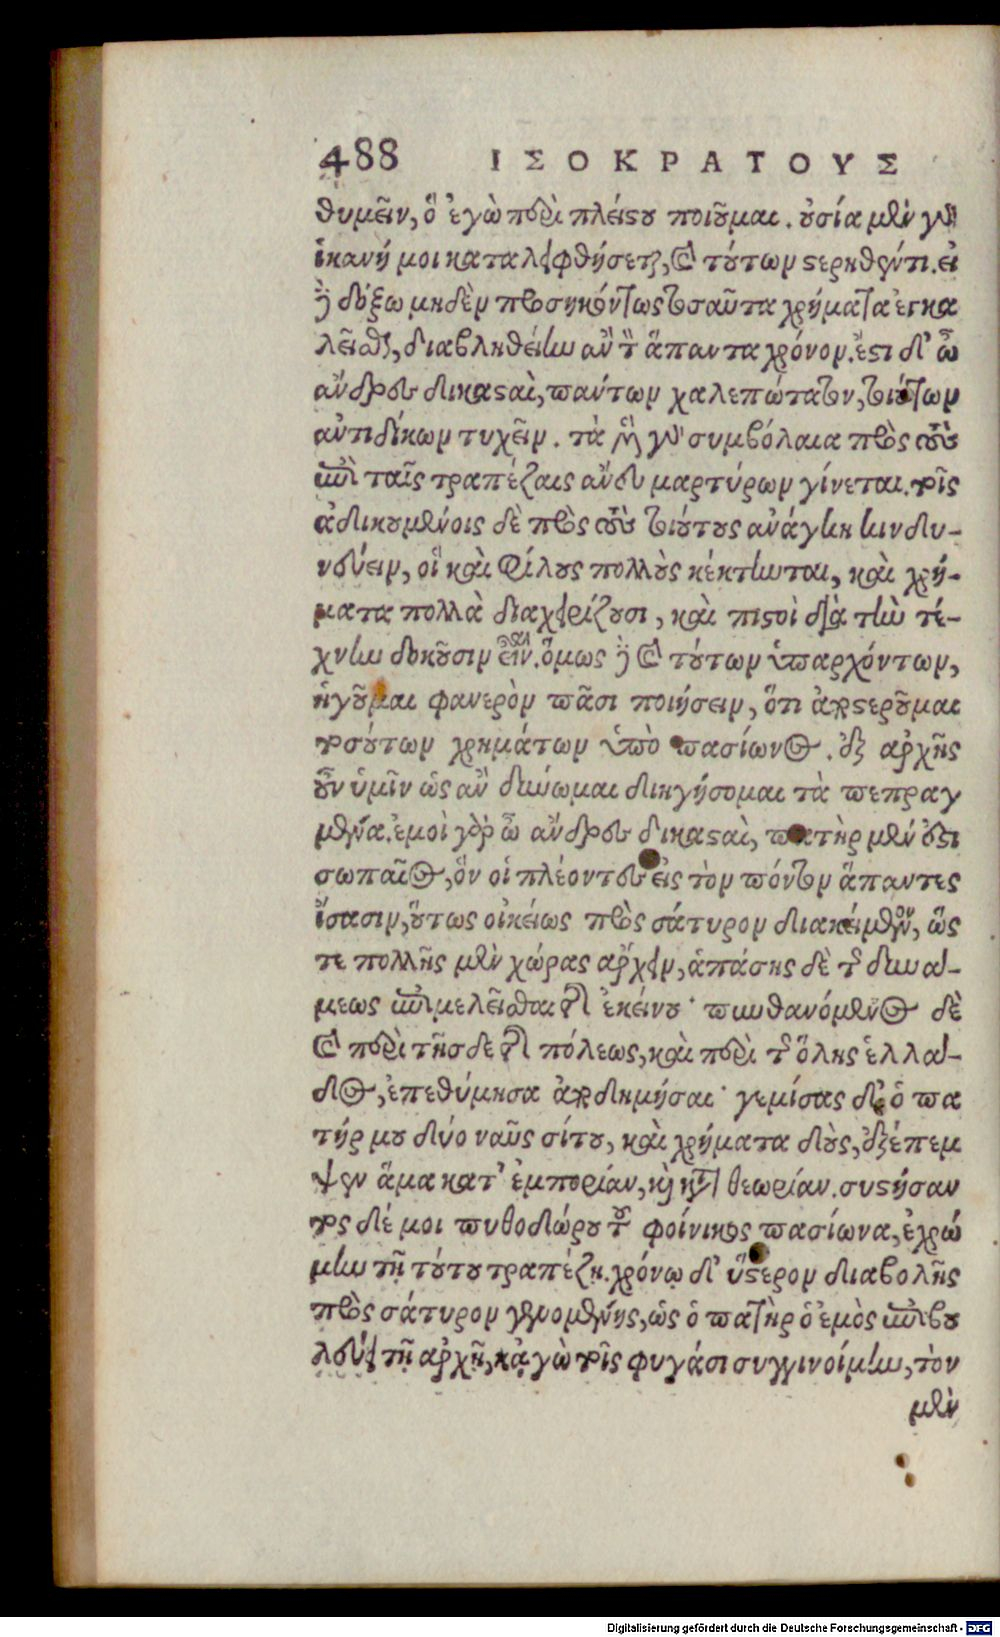 488 ΙΣΟΚΡΑΤΟΥΣ
θυμεῖν, ὃ ἐγὼ περὶ πλείστου ποιοῦμαι. οὐσία μὲν γὰρ
ἱκανή μοι καταλειφθήσεται, καὶ τούτων στερηθέντι. εἰ
δὲ δόξω μηδὲν προσηκόντως τοσαῦτα χρήματα ἐγκα
λεῖσθαι, διαβληθείην ἂν τὸν ἅπαντα χρόνον. ἔστι δ' ὦ
ἄνδρες δικασταὶ, πάντων χαλεπώτατον, τοιούτων
ἀντιδίκων τυχεῖν. τὰ μὲν γὰρ συμβόλαια πρὸς τοὺς
ἐπὶ ταῖς τραπέζαις ἄνευ μαρτύρων γίνεται. τοῖς
ἀδικουμένοις δὲ πρὸς τοὺς τοιούτους ἀνάγκη κινδυ-
νεύειν, οἳ καὶ φίλους πολλοὺς κέκτηνται, καὶ χρή-
ματα πολλὰ διαχειρίζουσι, καὶ πιστοὶ διὰ τὴν τέ-
χνην δοκοῦσιν εἶναι. ὅμως δὲ καὶ τούτων ὑπαρχόντων,
ἡγοῦμαι φανερὸν πᾶσι ποιήσειν, ὅτι ἀποστεροῦμαι
τοσούτων χρημάτων ὑπὸ πασίωνος. ἐξ ἀρχῆς
οὖν ὑμῖν ὡς ἂν δύνωμαι διηγήσομαι τὰ πεπραγ
μένα. ἐμοὶ γὰρ ὦ ἄνδρες δικασταὶ, πατὴρ μέν ἐστι
σωπαῖος, ὃν οἱ πλέοντες εἰς τὸν πόντον ἅπαντες
ἴσασιν, οὕτως οἰκείως πρὸς σάτυρον διακείμενον, ὥς
τε πολλῆς μὲν χώρας ἄρχειν, ἁπάσης δὲ τῆς δυνά-
μεως ἐπιμελεῖσθαι τῆς ἐκείνου· πυνθανόμενος δὲ
καὶ περὶ τῆσδε τῆς πόλεως, καὶ περὶ τῆς ὅλης ἑλλά-
δος, ἐπεθύμησα ἀποδημῆσαι· γεμίσας δὲ ὁ πα
τήρ μου δύο ναῦς σίτου, καὶ χρήματα δοὺς, ἐξέπεμ
ψεν ἅμα κατ' ἐμπορίαν, καὶ κατὰ θεωρίαν. συστήσαν
τος δέ μοι πυθοδώρου τοῦ φοίνικος πασίωνα, ἐχρώ
μην τῇ τούτου τραπέζῃ. χρόνῳ δ' ὕστερον διαβολῆς
πρὸς σάτυρον γενομένης, ὡς ὁ πατὴρ ὁ ἐμὸς ἐπιβου
λεύει τῇ ἀρχῇ, κἀγὼ τοῖς φυγάσι συγγινοίμην, τὸν
μὲν
Digitalisierung gefördert durch die Deutsche Forschungsgemeinschaft - DFG